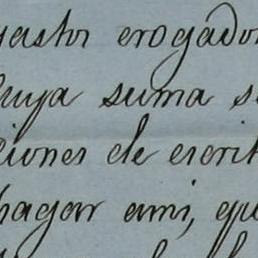 gastos erogados
cuya suma s
ciones de escrit
hagar ami, qu